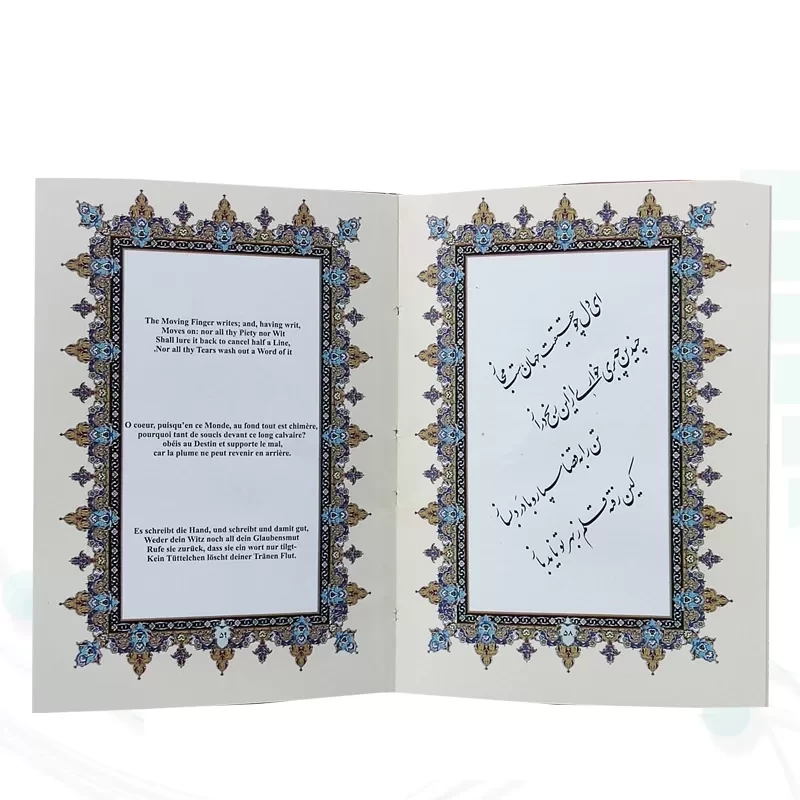 The Moving Finger writes; and, having writ,
Moves on: nor all thy Piety nor Wit
Shall lure it back to cancel half a Line,
.Nor all thy Tears wash out a Word of it
O coeur, puisqu'en ce Monde, au fond tout est chimère,
pourquoi tant de soucis devant ce long calvaire?
obéis au Destin et supporte le mal,
car la plume ne peut revenir en arrière.
Es schreibt die Hand, und schreibt und damit gut,
Weder dein Witz noch all dein Glaubensmut
Rufe sie zurück, dass sie ein wort nur tilgt-
Kein Tüttelchen löscht deiner Tränen Flut.
ای دل چو حقیقت جهان است مجاز
چندین چه بری خواری ازین رنج دراز
تن را به قضا سپار و با درد بساز
کین رفته قلم ز بهر تو ناید باز
۵۸